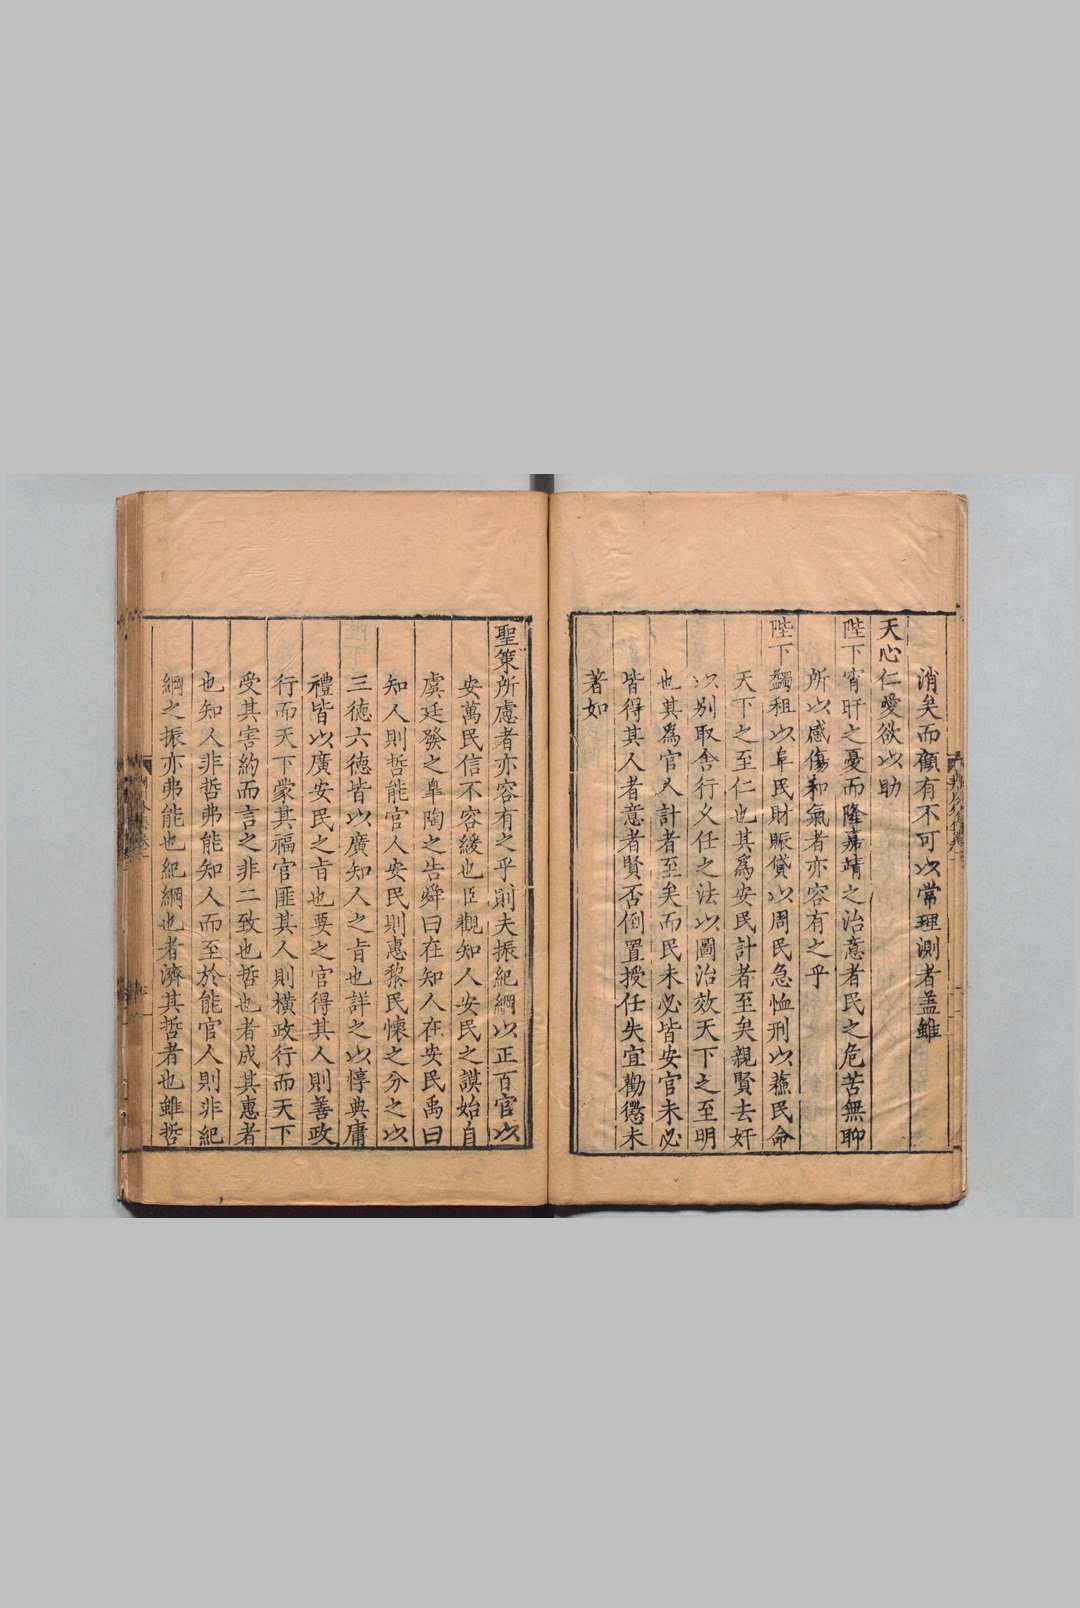 消矣而顧有不可以常理測者盖雖
天心仁愛欲以助
陛下宵旰之憂而隆嘉靖之治意者民之危苦無聊
所以感傷和氣者亦容有之乎
陛下蠲租以阜民財賑貸以周民急恤刑以蘓民命
天下之至仁也其爲安民計者至矣親賢去奸
以别取舍行义任之法以圖治效天下之至明
也其爲官人計者至矣而民未必皆安官未必
皆得其人者意者賢否倒置授任失宜勸懲未
著如
聖策所慮者亦容有之乎則夫振紀綱以正百官以
安萬民信不容緩也臣觀知人安民之謨始自
虞廷發之臯陶之告舜曰在知人在安民禹曰
知人則哲能官人安民則惠黎民懷之分之以
三德六德皆以廣知人之㫖也詳之以惇典庸
禮皆以廣安民之㫖也要之官得其人則善政
行而天下蒙其福官匪其人則橫政行而天下
受其害約而言之非二致也哲也者成其惠者
也知人非哲弗能知人而至於能官人則非紀
綱之振亦弗能也紀綱也者濟其哲者也雖哲